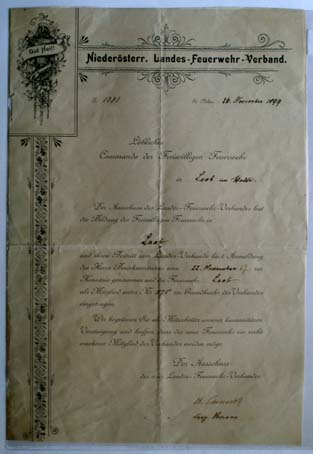 Gut Heil!
Niederösterr. Landes-Feuerwehr-Verband.
26. November 1899
Löbliches
Commando der Freiwilligen Feuerwehr
in Laab im Walde
Der Ausschuss des Landes-Feuerwehr-Verbandes hat
die Bildung der Freiwilligen Feuerwehr in
Laab
und ihren Beitritt zum Landes-Verbande laut Anmeldung
des Herrn vom 22. November l. J. zur
Kenntnis genommen und die Feuerwehr Laab
als Mitglied unter Nr. im Grundbuche des Verbandes
eingetragen.
Wir begrüssen Sie als Mitarbeiter unserer humanitären
Vereinigung und hoffen, dass die neue Feuerwehr ein recht
wackeres Mitglied des Verbandes werden möge.
Der Ausschuss
des n.-ö. Landes-Feuerwehr-Verbandes